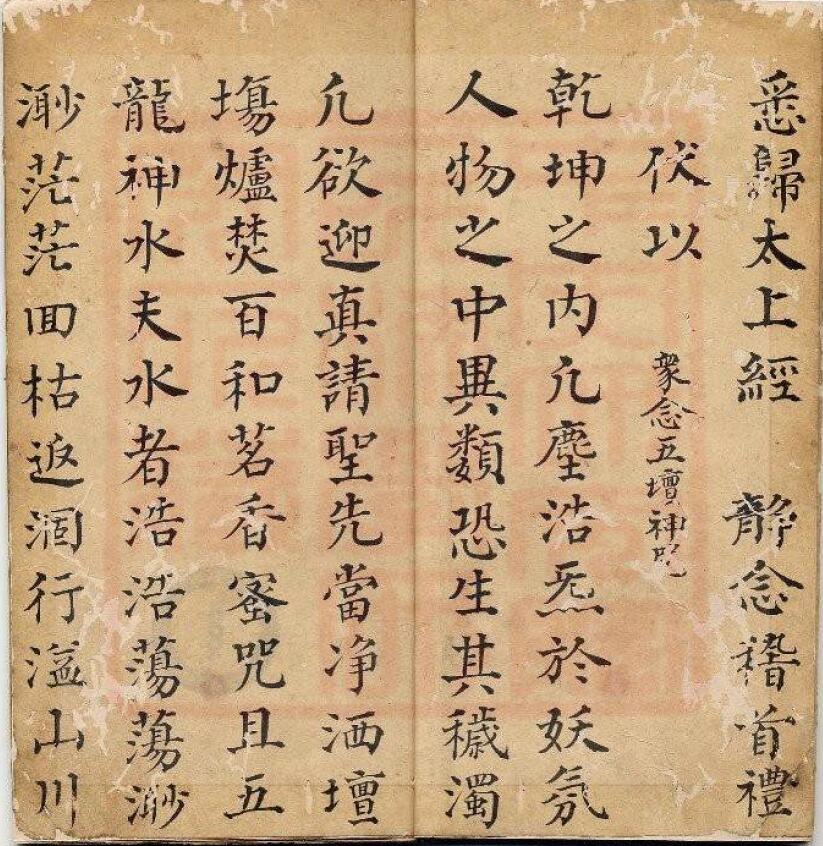 悉歸太上經　靜念稽首禮
伏以　衆念五壇神咒
乾坤之內凢塵浩炁於妖氛
人物之中異類恐生其穢濁
凢欲迎真請聖先當净洒壇
塲爐焚百和茗香蜜咒且五
龍神水夫水者浩浩蕩蕩渺
渺茫茫回枯返涸行溢山川